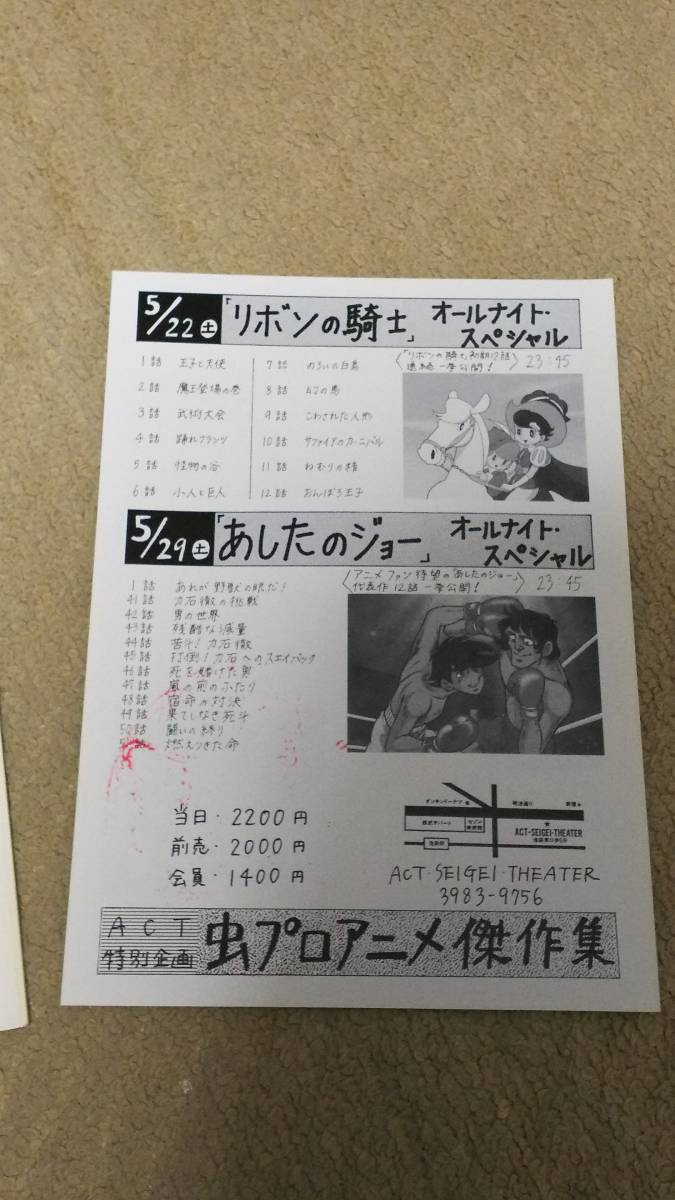 5/22 土 「リボンの騎士」 オールナイト・スペシャル
〈「リボンの騎士」初期12話 連続一挙公開!〉 23:45
1話 王子と天使
2話 魔王登場の巻
3話 武術大会
4話 踊れフランツ
5話 怪物の谷
6話 小人と巨人
7話 のろいの白鳥
8話 ムマの馬
9話 こわされた人形
10話 サファイアのカーニバル
11話 ねむりの精
12話 おんぼろ王子
5/29 土 「あしたのジョー」 オールナイト・スペシャル
〈アニメファン待望の「あしたのジョー」代表作12話一挙公開!〉 23:45
1話 あれが野獣の眼だ!
41話 力石徹の挑戦
42話 男の世界
43話 残酷な減量
44話 苦斗!力石徹
45話 打倒!力石へのスエイバック
46話 死を賭けた男
47話 嵐の前のふたり
48話 宿命の対決
49話 果てしなき死斗
50話 闘いの終り
燃えつきた命
当日・2200円
前売・2000円
会員・1400円
明治通り
新宿
西武デパート
セゾン美術館
池袋駅
ACT-SEIGEI-THEATER
ACT・SEIGEI・THEATER
3983-9756
ACT
特別企画
虫プロアニメ傑作集